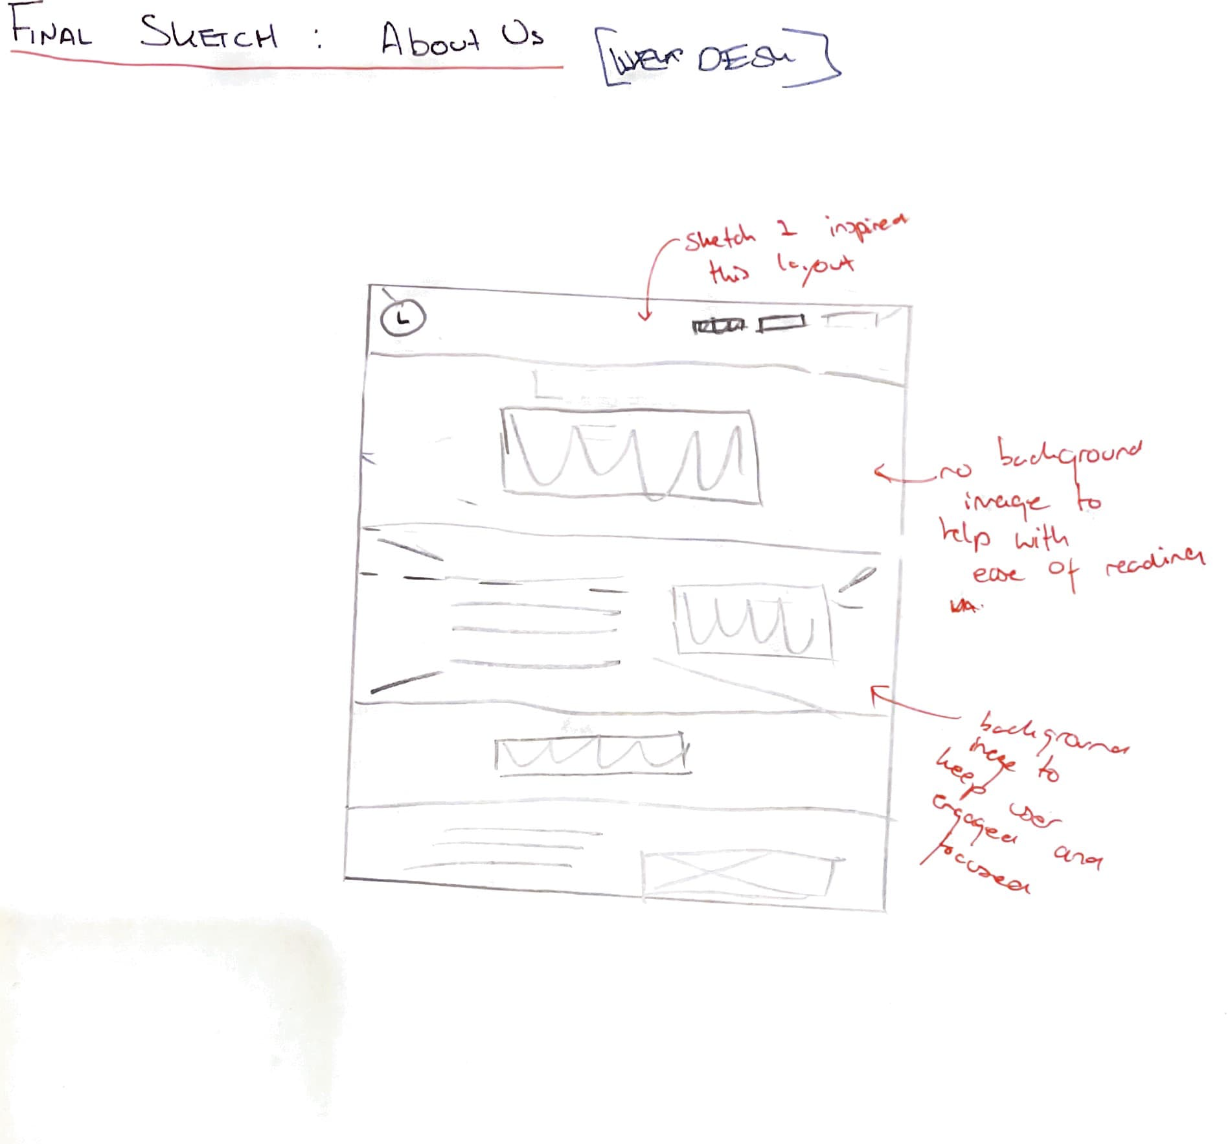 FINAL SKETCH : About Us
[WEB DESK]
sketch 2 inspired
this layout
L
no background
image to
help with
ease of reading
background
image to
keep user
engaged and
focused